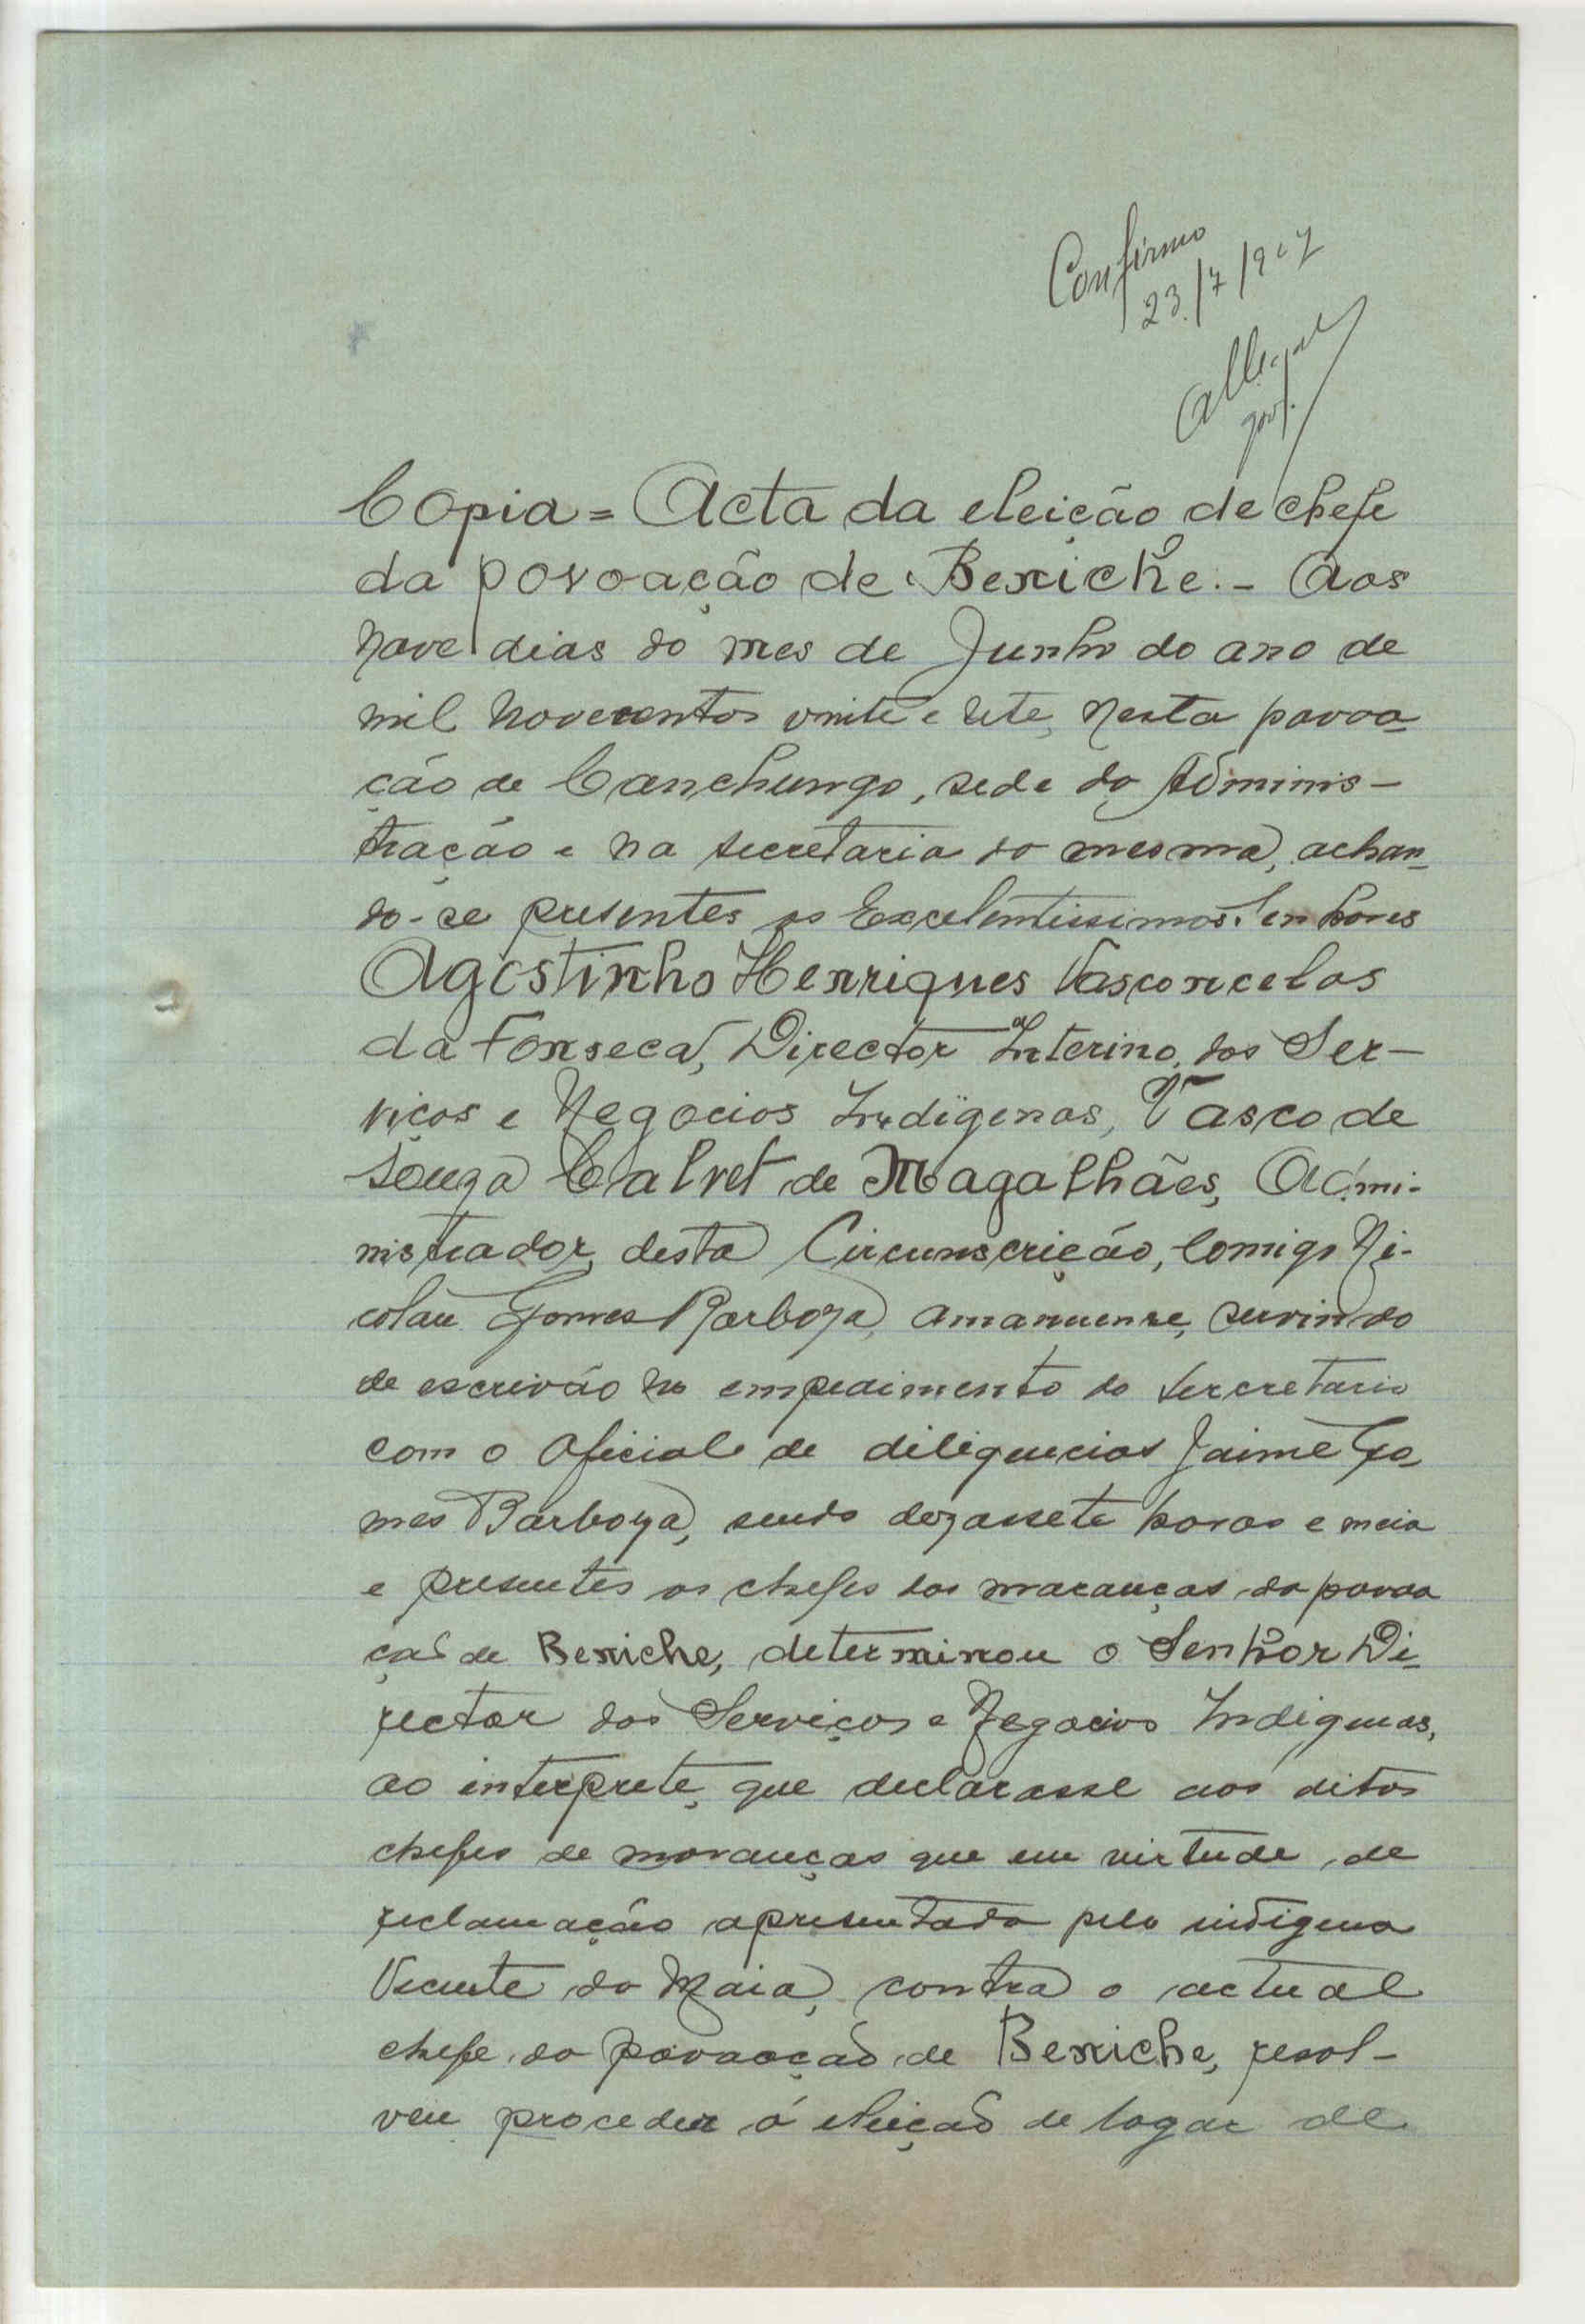 Confirmo
23/7/927
gov.
Copia = Acta da eleição de chefe
da povoação de Beniche. - Aos
nove dias do mes de Junho do ano de
mil novecentos vinte e sete, nesta povoa-
ção de Canchungo, sede da Adminis-
tração e na secretaria da mesma, achan-
do-se presentes os Excelentissimos Senhores
Agostinho Henriques Vasconcelos
da Fonseca, Director Interino dos Ser-
viços e Negocios Indigenas, Vasco de
Souza Calvet de Magalhães, Admi-
nistrador desta Circunscrição, comigo Ni-
colau Gomes Barboza, amanuense, servindo
de escrivão no empedimento do secretario
com o oficial de deligencias Jaime Go-
mes Barboza, sendo dezassete horas e meia
e presentes os chefes das moranças da povoa
ção de Beniche, determinou o Senhor Di-
rector dos Serviços e Negocios Indigenas,
ao interprete que declarasse aos ditos
chefes de moranças que em virtude de
reclamação apresentada pelo indigena
Vicente da Maia, contra o actual
chefe da povoação de Beniche, resol-
veu proceder á eleição de logar de